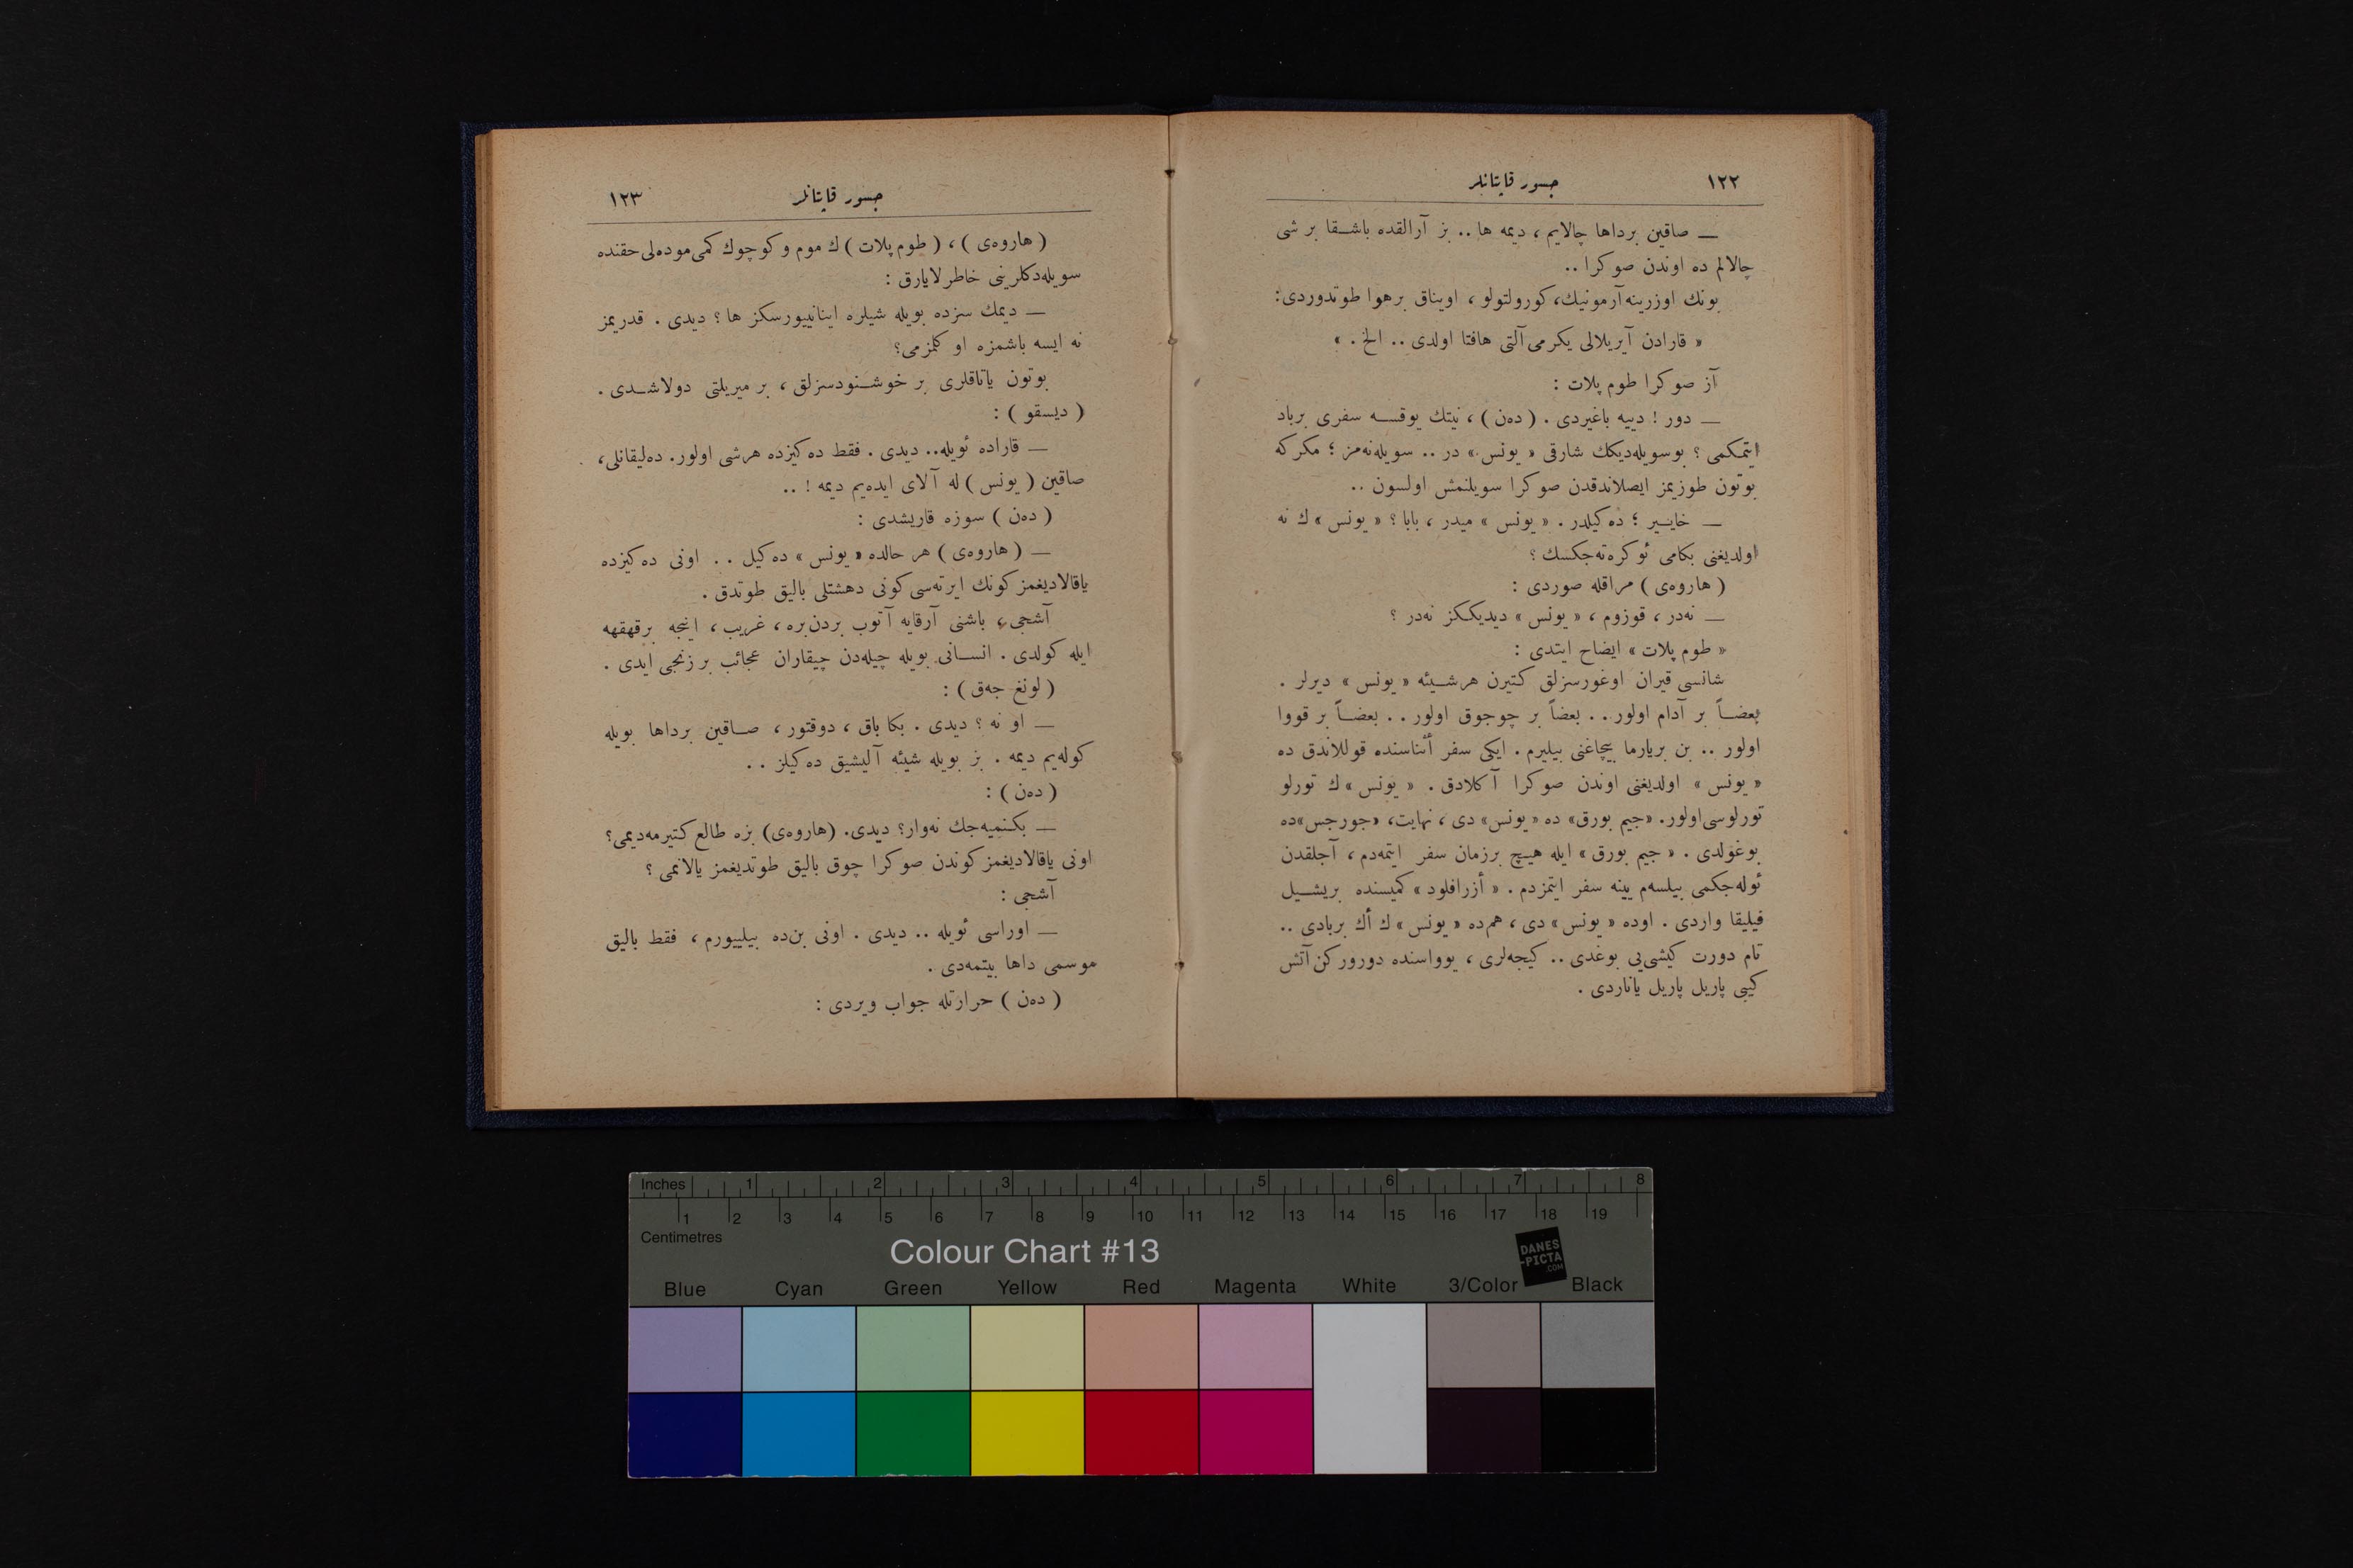 ١٢٢
جسور قاپتانلر
— صاقین برداها چالایم ، دیمه ها .. بز آرالقده باشقا بر شی
چالالم ده اوندن صوكرا ..
بونك اوزرینه آرمونیك، كورولتولو ، اویناق برهوا طوتدوردی:
« قارادن آیریلالی یكرمی آلتی هافتا اولدی .. الخ . »
آز صوكرا طوم پلات :
— دور ! دییه باغیردی . ( ده‌ن ) ، نیتك یوقسه سفری برباد
ایتمكمی ؟ بوسویله‌دیكك شارقی « یونس » در .. سویله‌نه‌مز ؛ مكر كه
بوتون طوزیمز ایصلاندقدن صوكرا سویلنمش اولسون ..
— خایــیر ؛ ده‌كیلدر . « یونس » میدر ، بابا ؟ « یونس » ك نه
اولدیغنی بكامی ئوكره‌ته‌جكسك ؟
( هاروه‌ی ) مراقله صوردی :
— نه‌در ، قوزوم ، « یونس » دیدیككز نه‌در ؟
« طوم پلات » ایضاح ایتدی :
شانسی قیران اوغورسزلق كتیرن هرشیئه « یونس » دیرلر .
بعضاً بر آدام اولور .. بعضاً بر چوجوق اولور .. بعضاً بر قووا
اولور .. بن بریارما بیچاغنی بیلیرم . ایكی سفر أثناسنده قوللاندق ده
« یونس » اولدیغنی اوندن صوكرا آكلادق . « یونس » ك تورلو
تورلوسی اولور. «جیم بورق» ده «یونس» دی ، نهایت، «جورجس» ده
بوغولدی . « جیم بورق » ایله هیچ برزمان سفر ایتمه‌دم ، آجلقدن
ئوله‌جكمی بیلسه‌م یینه سفر ایتمزدم . « أزرافلود » كمیسنده بریشیل
فیلیقا واردی . اوده « یونس » دی ، هم‌ده « یونس » ك أك بربادی ..
تام دورت كیشی‌یی بوغدی .. كیجه‌لری ، یوواسنده دوروركن آتش
كیبی پاریل پاریل یاناردی .
جسور قاپتانلر
١٢٣
( هاروه‌ی ) ، ( طوم پلات ) ك موم و كوچوك كمی موده‌لی حقنده
سویله‌دكلرینی خاطرلایارق :
— دیمك سزده بویله شیلره اینانییورسكز ها ؟ دیدی . قدریمز
نه ایسه باشمزه او كلمزمی؟
بوتون یاتاقلری بر خوشنودسزلق ، بر میریلتی دولاشدی .
( دیسقو ) :
— قاراده ئویله.. دیدی . فقط ده‌كیزده هرشی اولور. ده‌لیقانلی،
صاقین ( یونس ) له آلای ایده‌یم دیمه ! ..
( ده‌ن ) سوزه قاریشدی :
— ( هاروه‌ی ) هر حالده « یونس » ده‌كیل .. اونی ده‌كیزده
یاقالادیغمز كونك ایرته‌سی كونی دهشتلی بالیق طوتدق .
آشجی ، باشنی آرقایه آتوب بردن‌بره ، غریب ، اینجه برقهقهه
ایله كولدی . انسانی بویله چیله‌دن چیقاران عجائب بر زنجی ایدی .
( لونغ جه‌ق ) :
— او نه ؟ دیدی . بكا باق ، دوقتور ، صاقین برداها بویله
كوله‌یم دیمه . بز بویله شیئه آلیشیق ده‌كیلز ..
( ده‌ن ) :
— بكنمیه‌جك نه‌وار؟ دیدی. (هاروه‌ی) بزه طالع كتیرمه‌دیمی؟
اونی یاقالادیغمز كوندن صوكرا چوق بالیق طوتدیغمز یالانمی ؟
آشجی :
— اوراسی ئویله .. دیدی . اونی بن‌ده بیلییورم ، فقط بالیق
موسمی داها بیتمه‌دی .
( ده‌ن ) حرارتله جواب ویردی :
Inches 1 2 3 4 5 6 7 8
1 2 3 4 5 6 7 8 9 10 11 12 13 14 15 16 17 18 19
Centimetres
Colour Chart #13
DANES
-PICTA
.COM
Blue Cyan Green Yellow Red Magenta White 3/Color Black